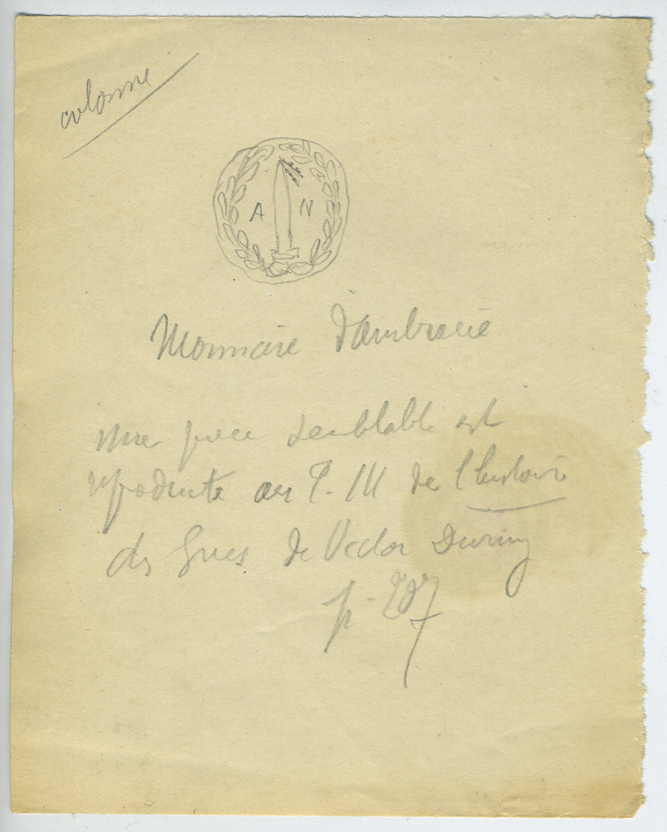 colonne
A N
Monnaie d'Ambracie
une pièce semblable est
reproduite au T. III de l'histoire
des Grecs de Victor Duruy
p.